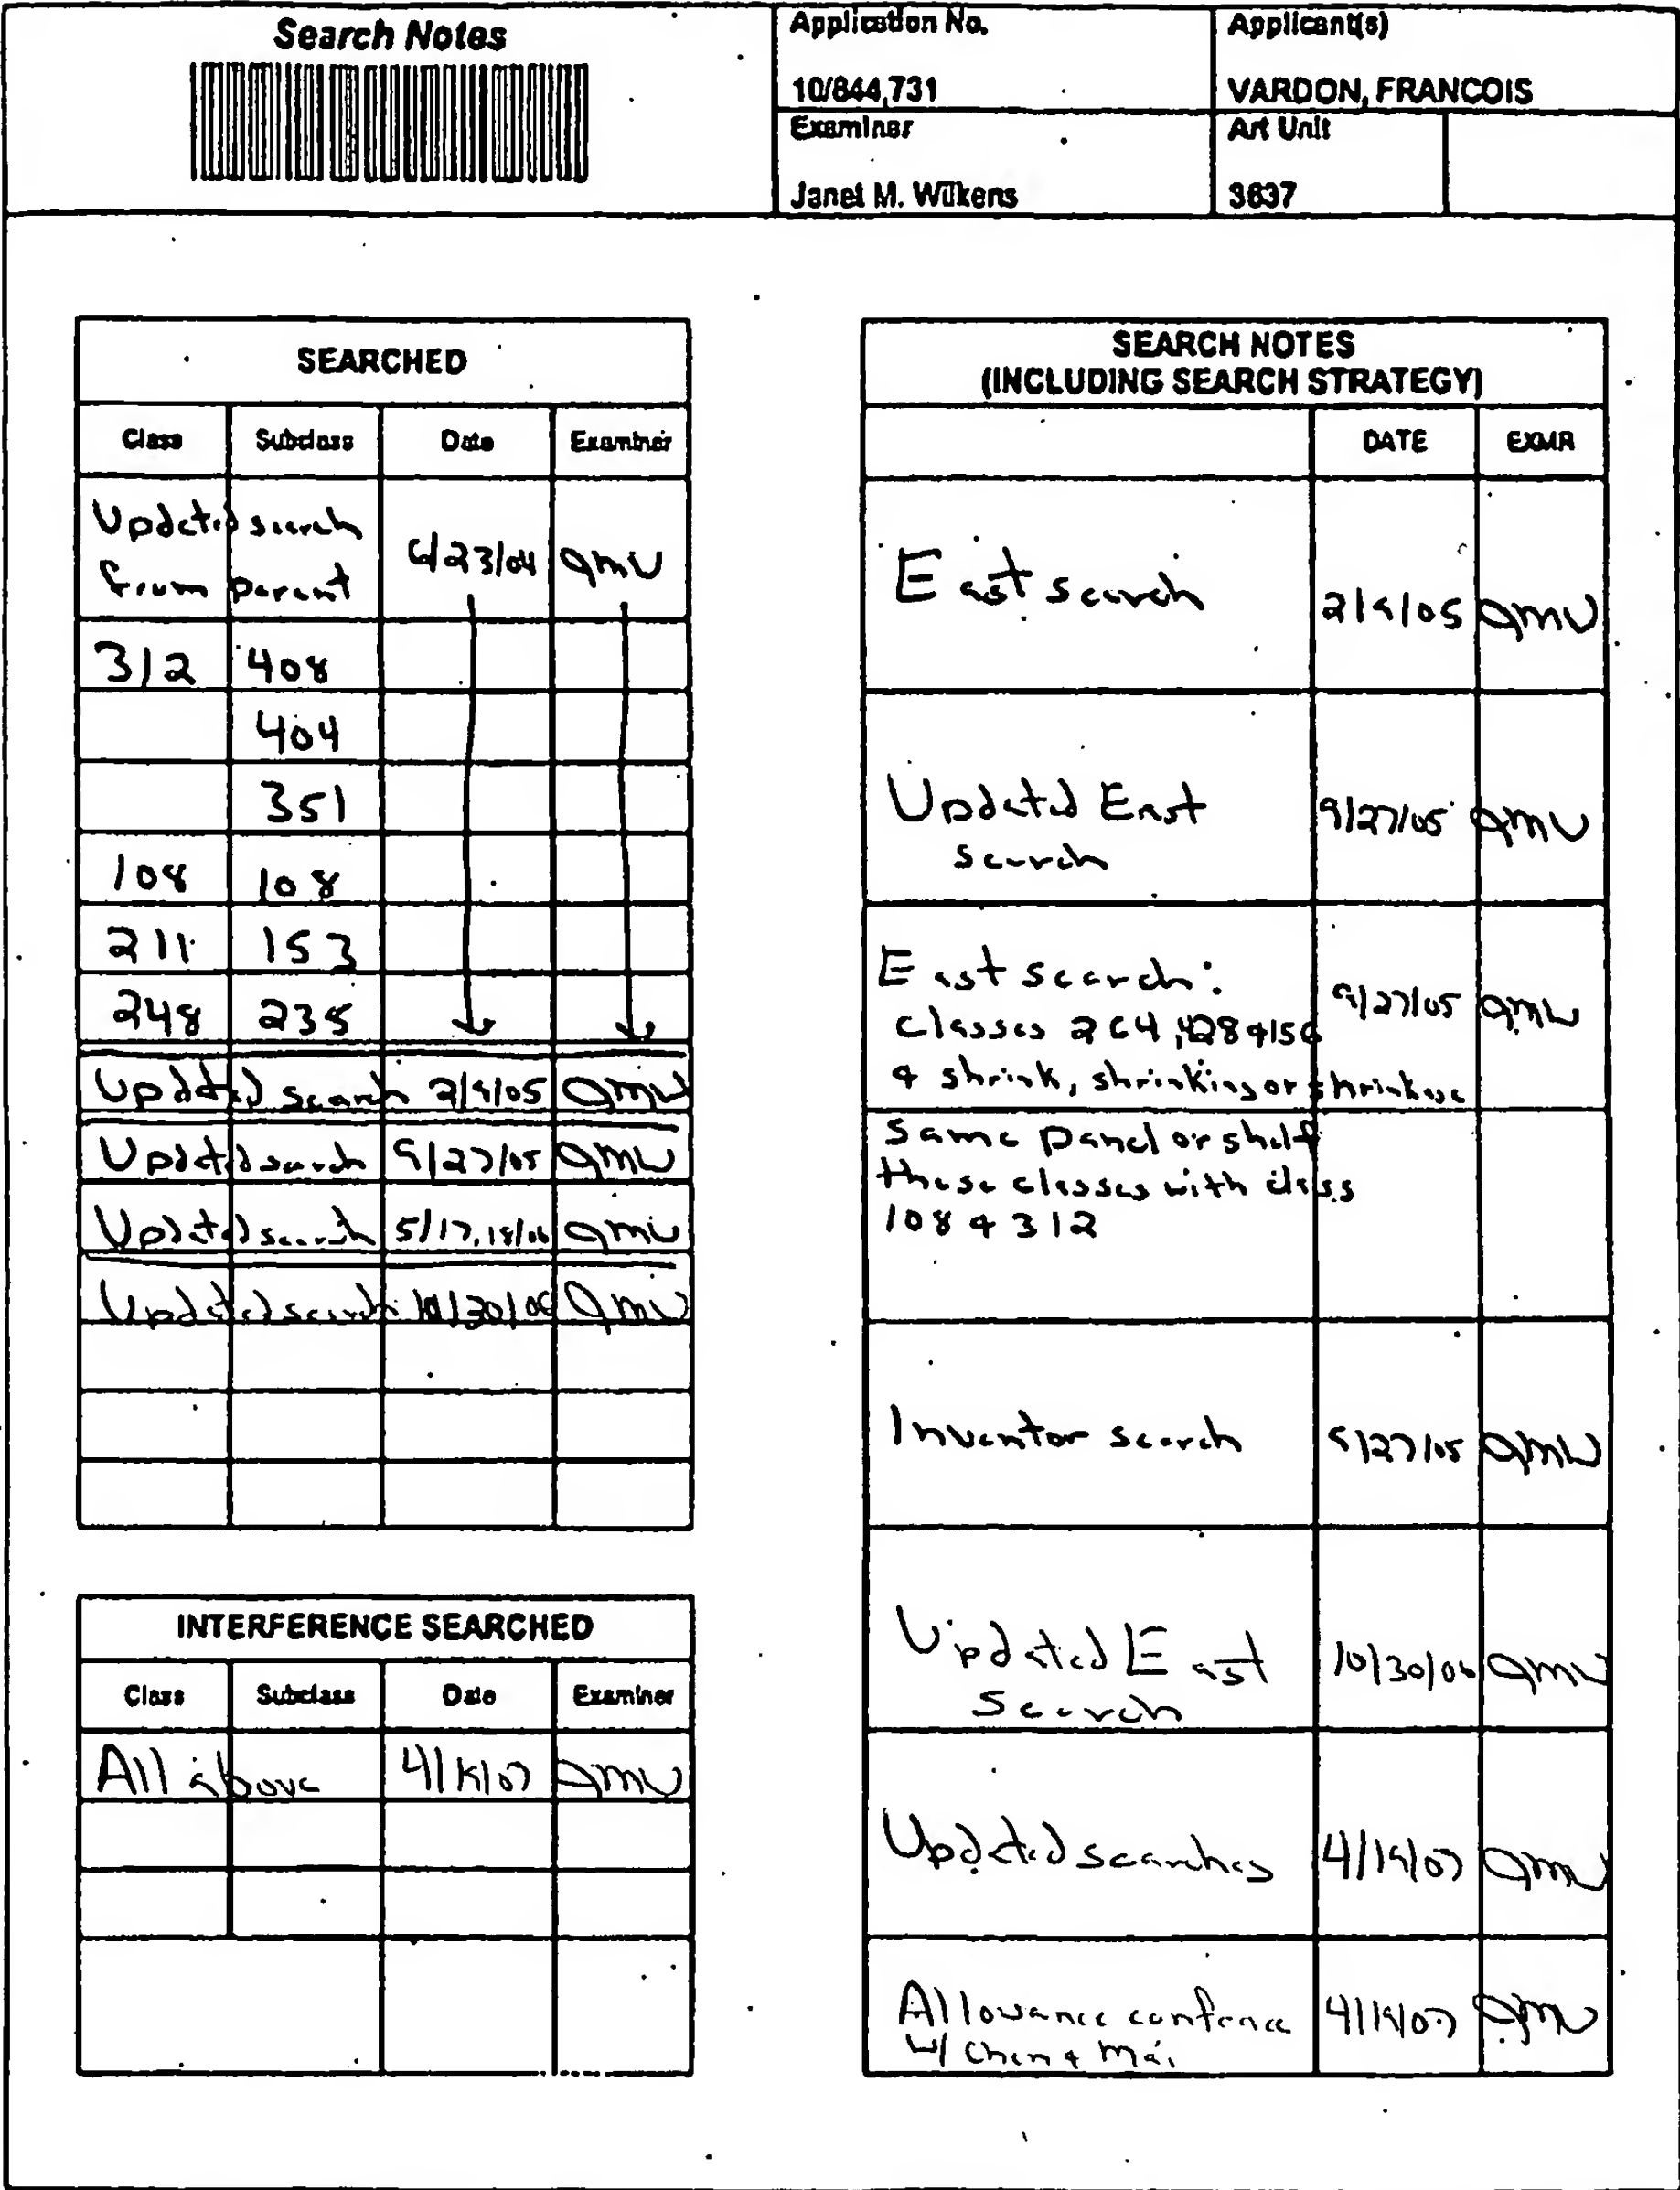 Search Notes
Application No.
10/844,731
Applicant(s)
VARDON, FRANCOIS
Examiner
Janet M. Wilkens
Art Unit
3637
SEARCHED
Class Subclass Date Examiner
Updated search
from parent 6/23/04 JMW
312 408
404
351
108 108
211 153
248 235
Updated search 2/9/05 JMW
Updated search 9/27/05 JMW
Updated search 5/17,18/06 JMW
Updated search 10/30/06 JMW
INTERFERENCE SEARCHED
Class Subclass Date Examiner
All above 4/19/07 JMW
SEARCH NOTES
(INCLUDING SEARCH STRATEGY)
DATE EXMR
East search 2/9/05 JMW
Updated East
search 9/27/05 JMW
East search:
classes 264, 428 & 156 9/27/05 JMW
& shrink, shrinking or
same panel or shelf
these classes with class
108 & 312
Inventor search 9/27/05 JMW
Updated East
Search 10/30/06 JMW
Updated searches 4/19/07 JMW
Allowance 4/19/07 JMW
w/ Chen & Mai